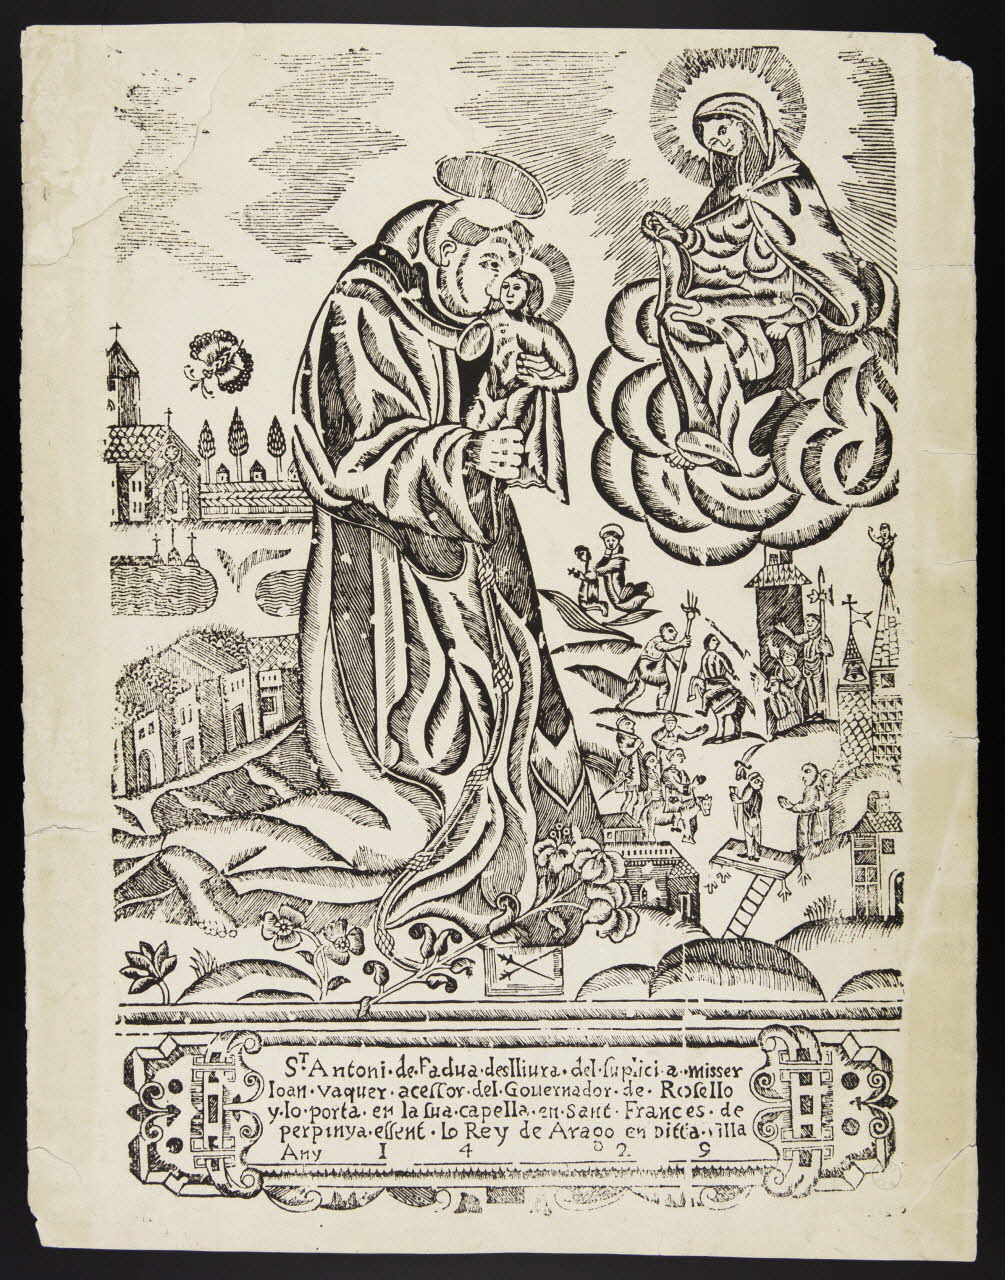 S.T Antoni·de·Padua·deslliura·del·suplici·a·misser
Ioan·vaquer·acessor·del·Gouernador·de·Rosello
y·lo·porta·en la sua·capella·en·Sant·Frances·de
perpinya·essent·lo Rey de Arago en Ditta·villa
Any 1 4 2. 9